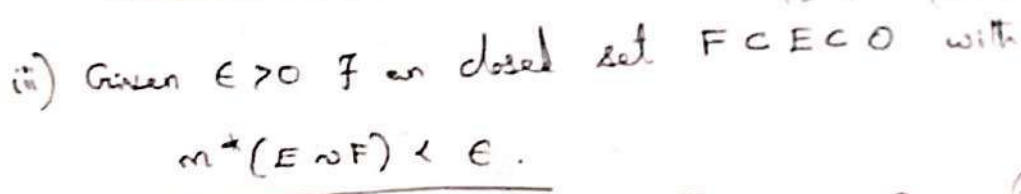 iii) Given ϵ >0 ∃ an closed set F ⊂ E ⊂ O with
m*(E ~ F) < ϵ.